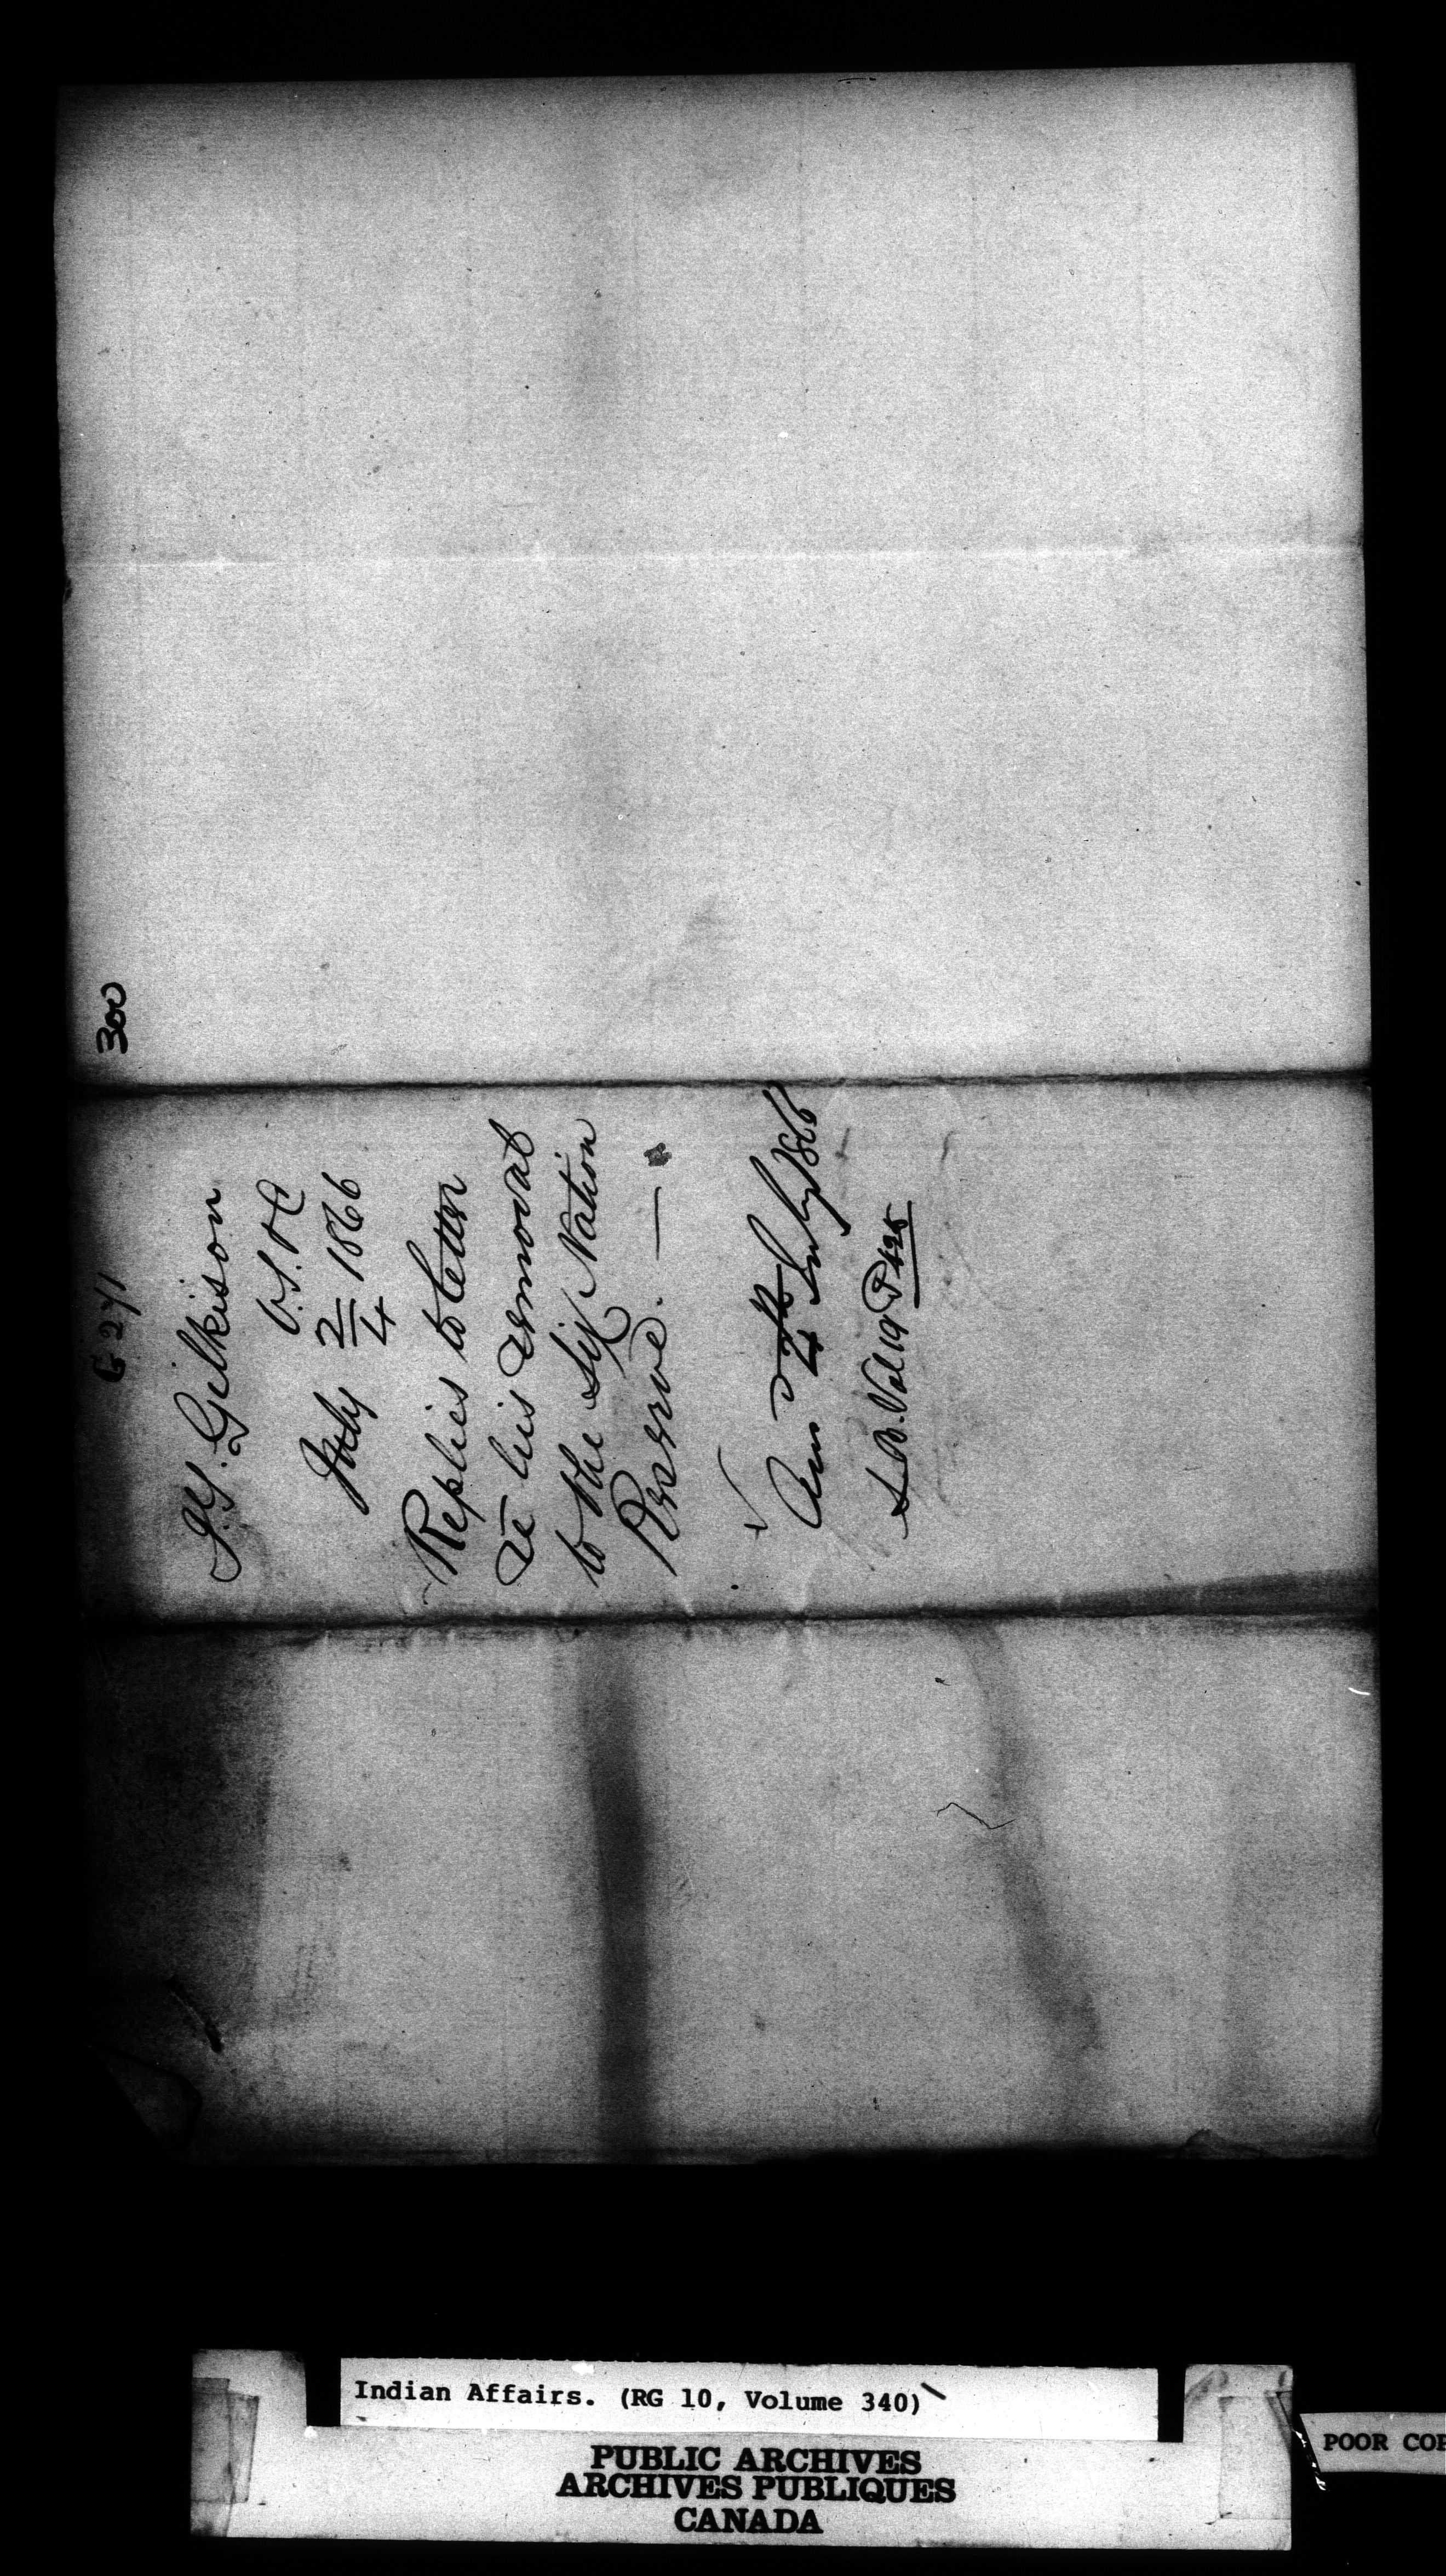 300
G 271
J.T. Gilkison
V.S. & C
July 2/4 1866
Replies to letter
re his removal
to the Six Nation
Reserve. —
Ans d 4th July 1866
L.B. Vol 19 P 425
Indian Affairs. (RG 10, Volume 340)
PUBLIC ARCHIVES
ARCHIVES PUBLIQUES
CANADA
POOR COP